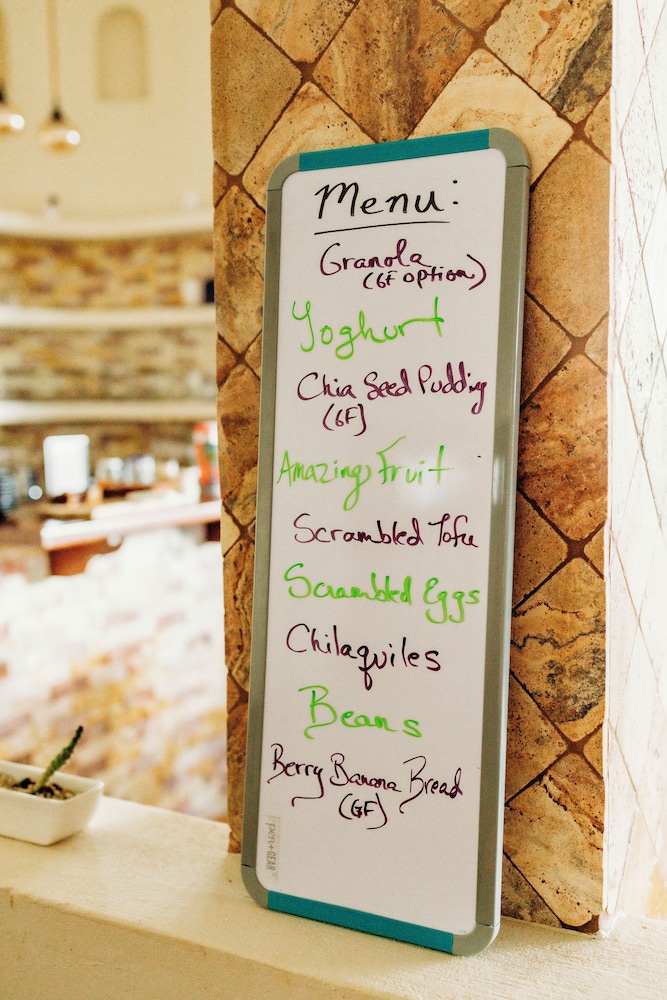 Menu:
Granola
(GF option)
Yoghurt
Chia Seed Pudding
(GF)
Amazing Fruit
Scrambled Tofu
Scrambled Eggs
Chilaquiles
Beans
Berry Banana Bread
(GF)
pen+GEAR